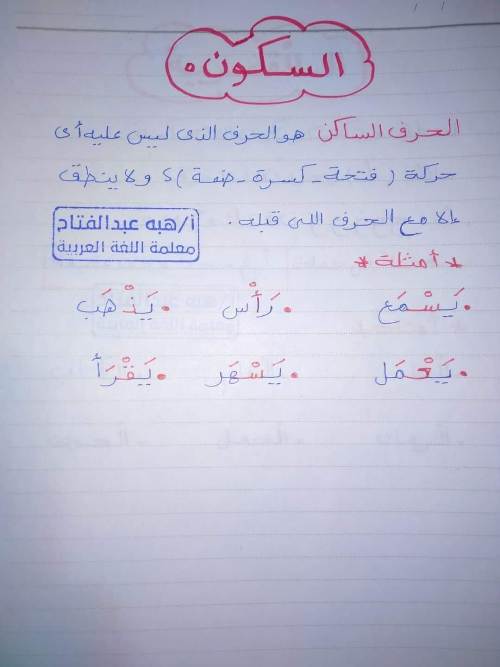 السكون ْ
الحرف الساكن هو الحرف الذى ليس عليه أى
حركة ( فتحة - كسرة - ضمة ) ولا ينطق
إلا مع الحرف اللى قبله .
أ/هبه عبدالفتاح
معلمة اللغة العربية
* أمثلة *
• يَسْمَع • رَأْس • يَذْهَب
• يَعْمَل • يَسْهَر • يَقْرَأ